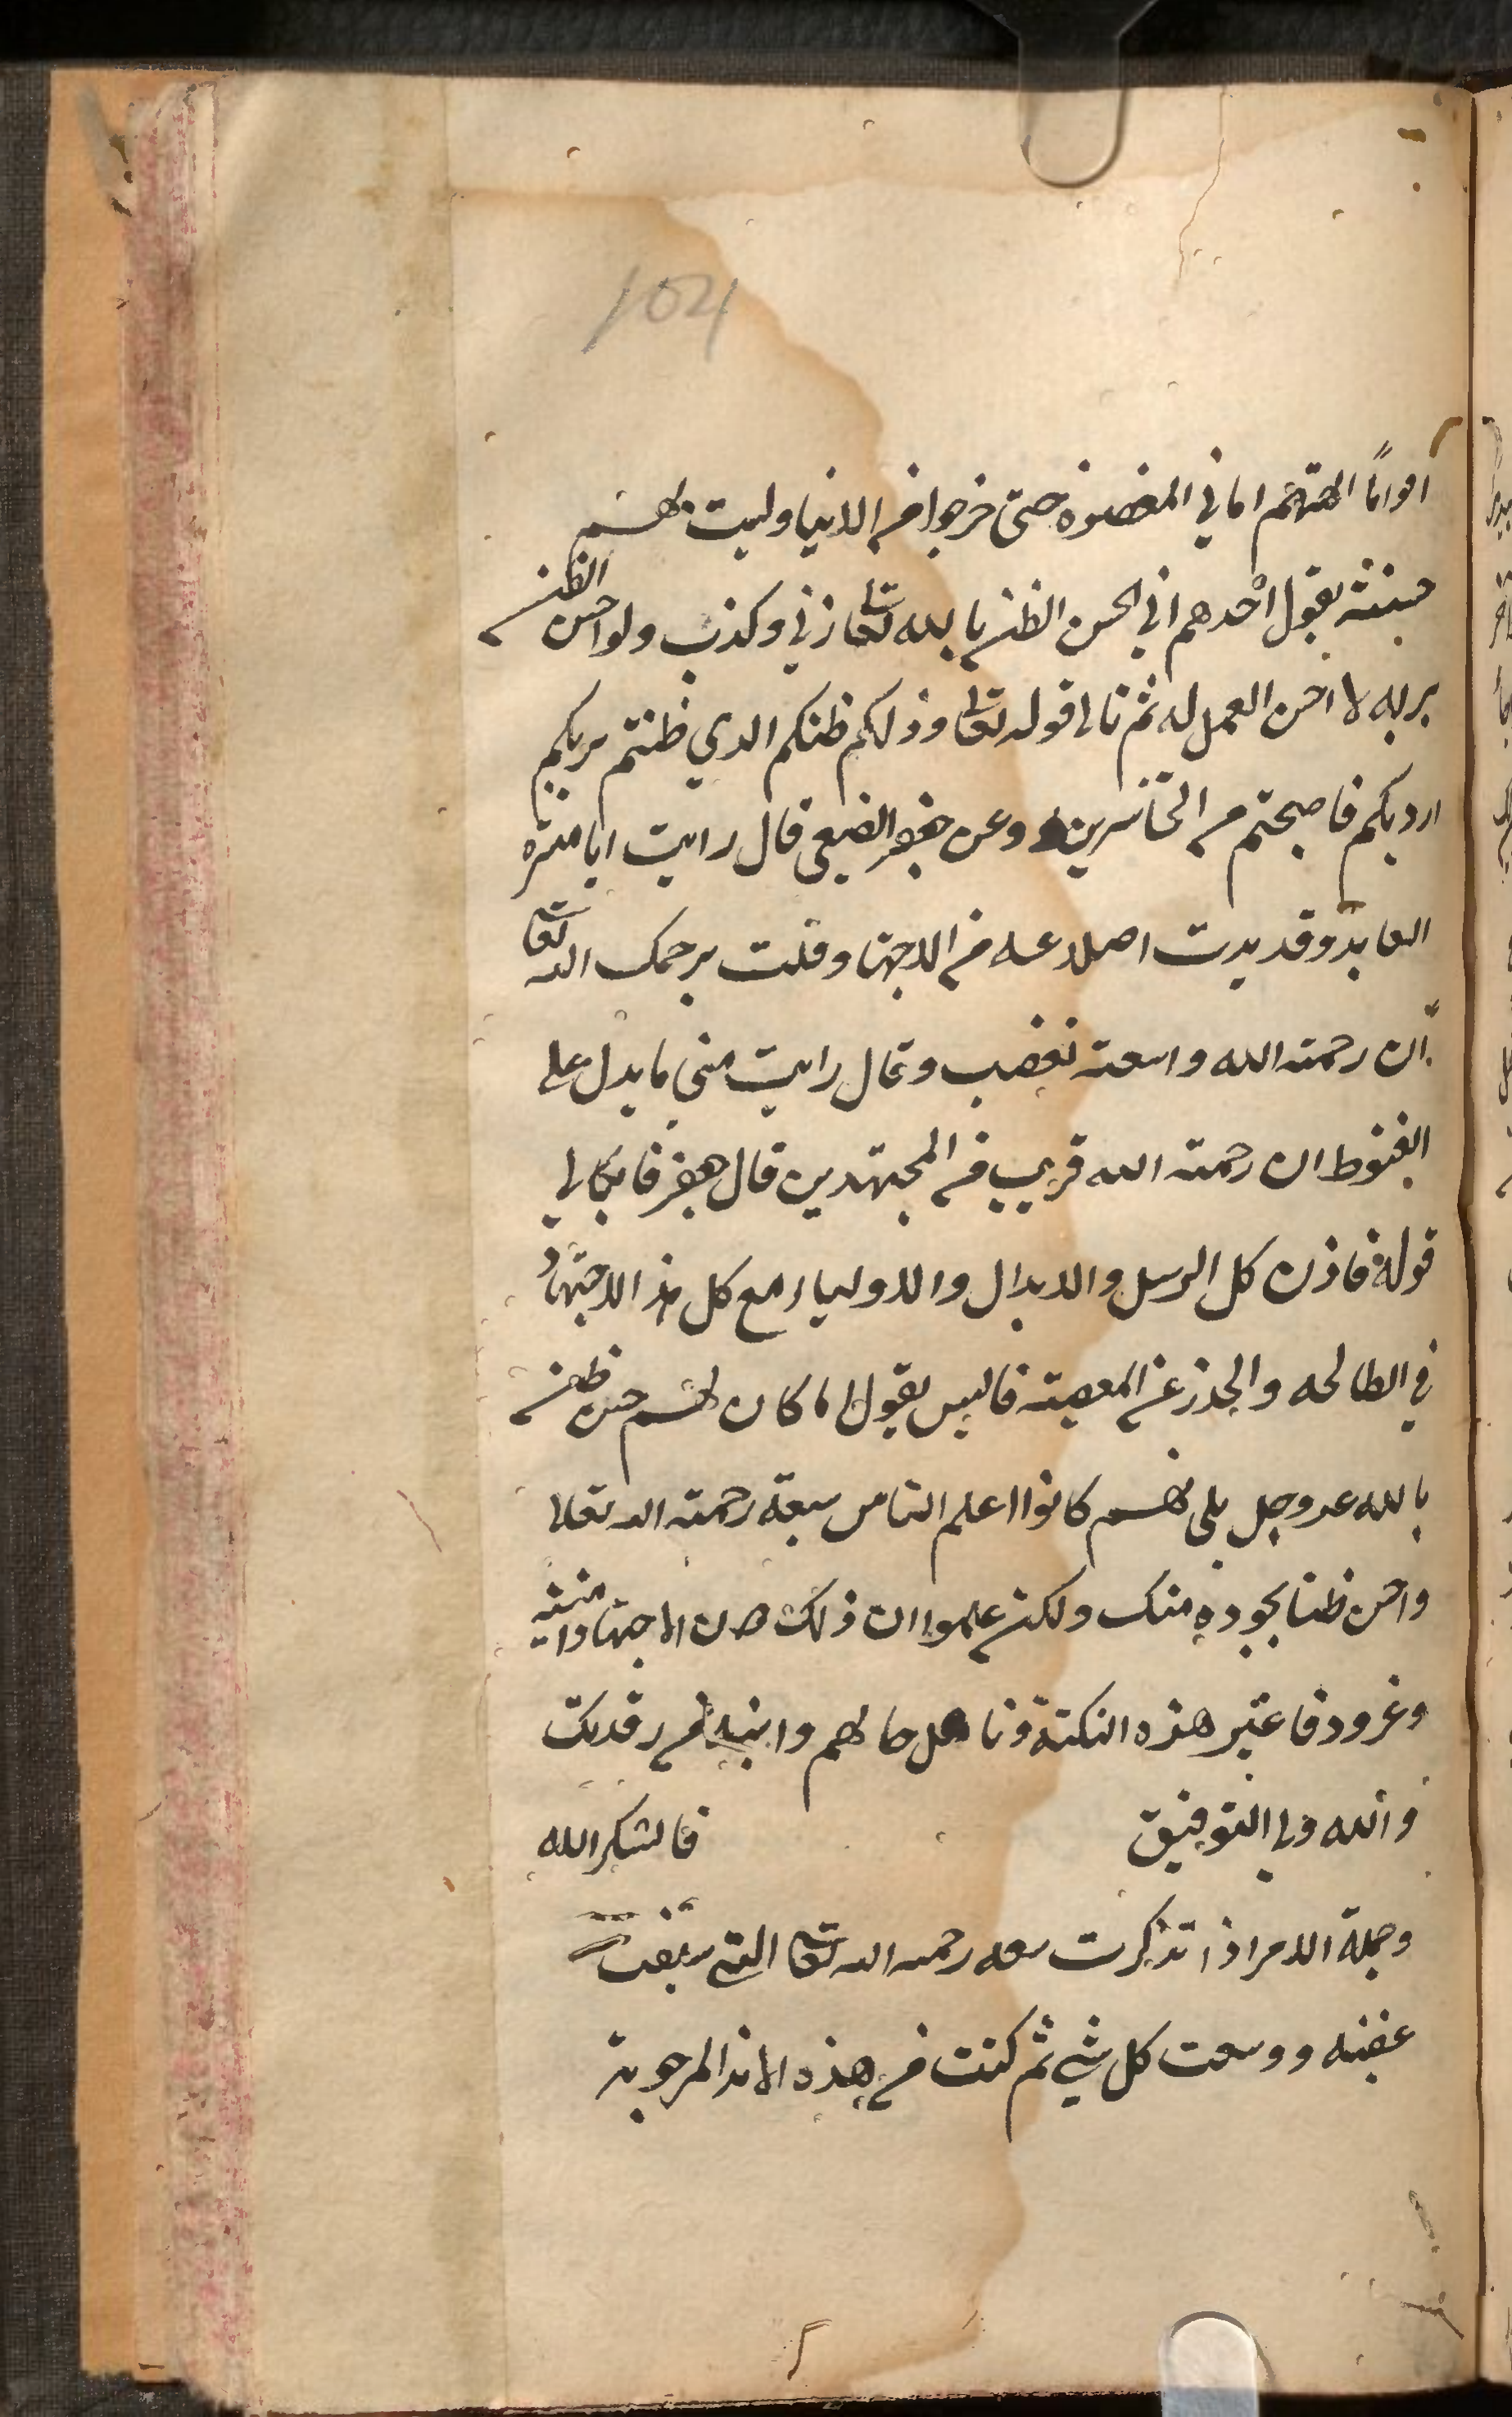 104
اقواماً الهتهم اماني المغفرة حتى خرجوا من الدنيا وليت لهم
حسنة يقول احدهم اني احسن الظن بالله تعا زني وكذب ولو احسن الظن
بربه لا احسن العمل له ثم تالى قوله تعالى وذلكم ظنكم الذي ظنتم بربكم
ارديكم فاصبحتم من الخاسرين وعن جعفر الضبعي قال رايت ابا ميسره
العابد وقد بدت اضلاعه من الاجتها وقلت يرحمك الله تعا
ان رحمته الله واسعته فغضب وقال رايت مني ما يدل على
القنوط ان رحمته الله قريب من المجتهدين قال جعفر فابكالي
قوله فاذن كل الرسل والابدال والاولياء مع كل هذا الاجتهاد
في الطالحه والحذر عن المعصيته فاليس يقول لما كان لهم حسن ظن
بالله عز وجل بلى لهم كانوا اعلم الناس سعة رحمته الله تعالا
واحسن ظنا بجوده منك ولكن علموا ان ذلك دون الاجتهاد امنية
وغرور فاعتبر هذه النكتة وتامل حالهم وانتبه من رقدتك
والله ولي التوفيق فالشكر الله
وجملة الامر اذا تذكرت سعه رحمه الله تعا التي سبقت
غضبه ووسعت كل شي ثم كنت من هذه الامة المرحومة